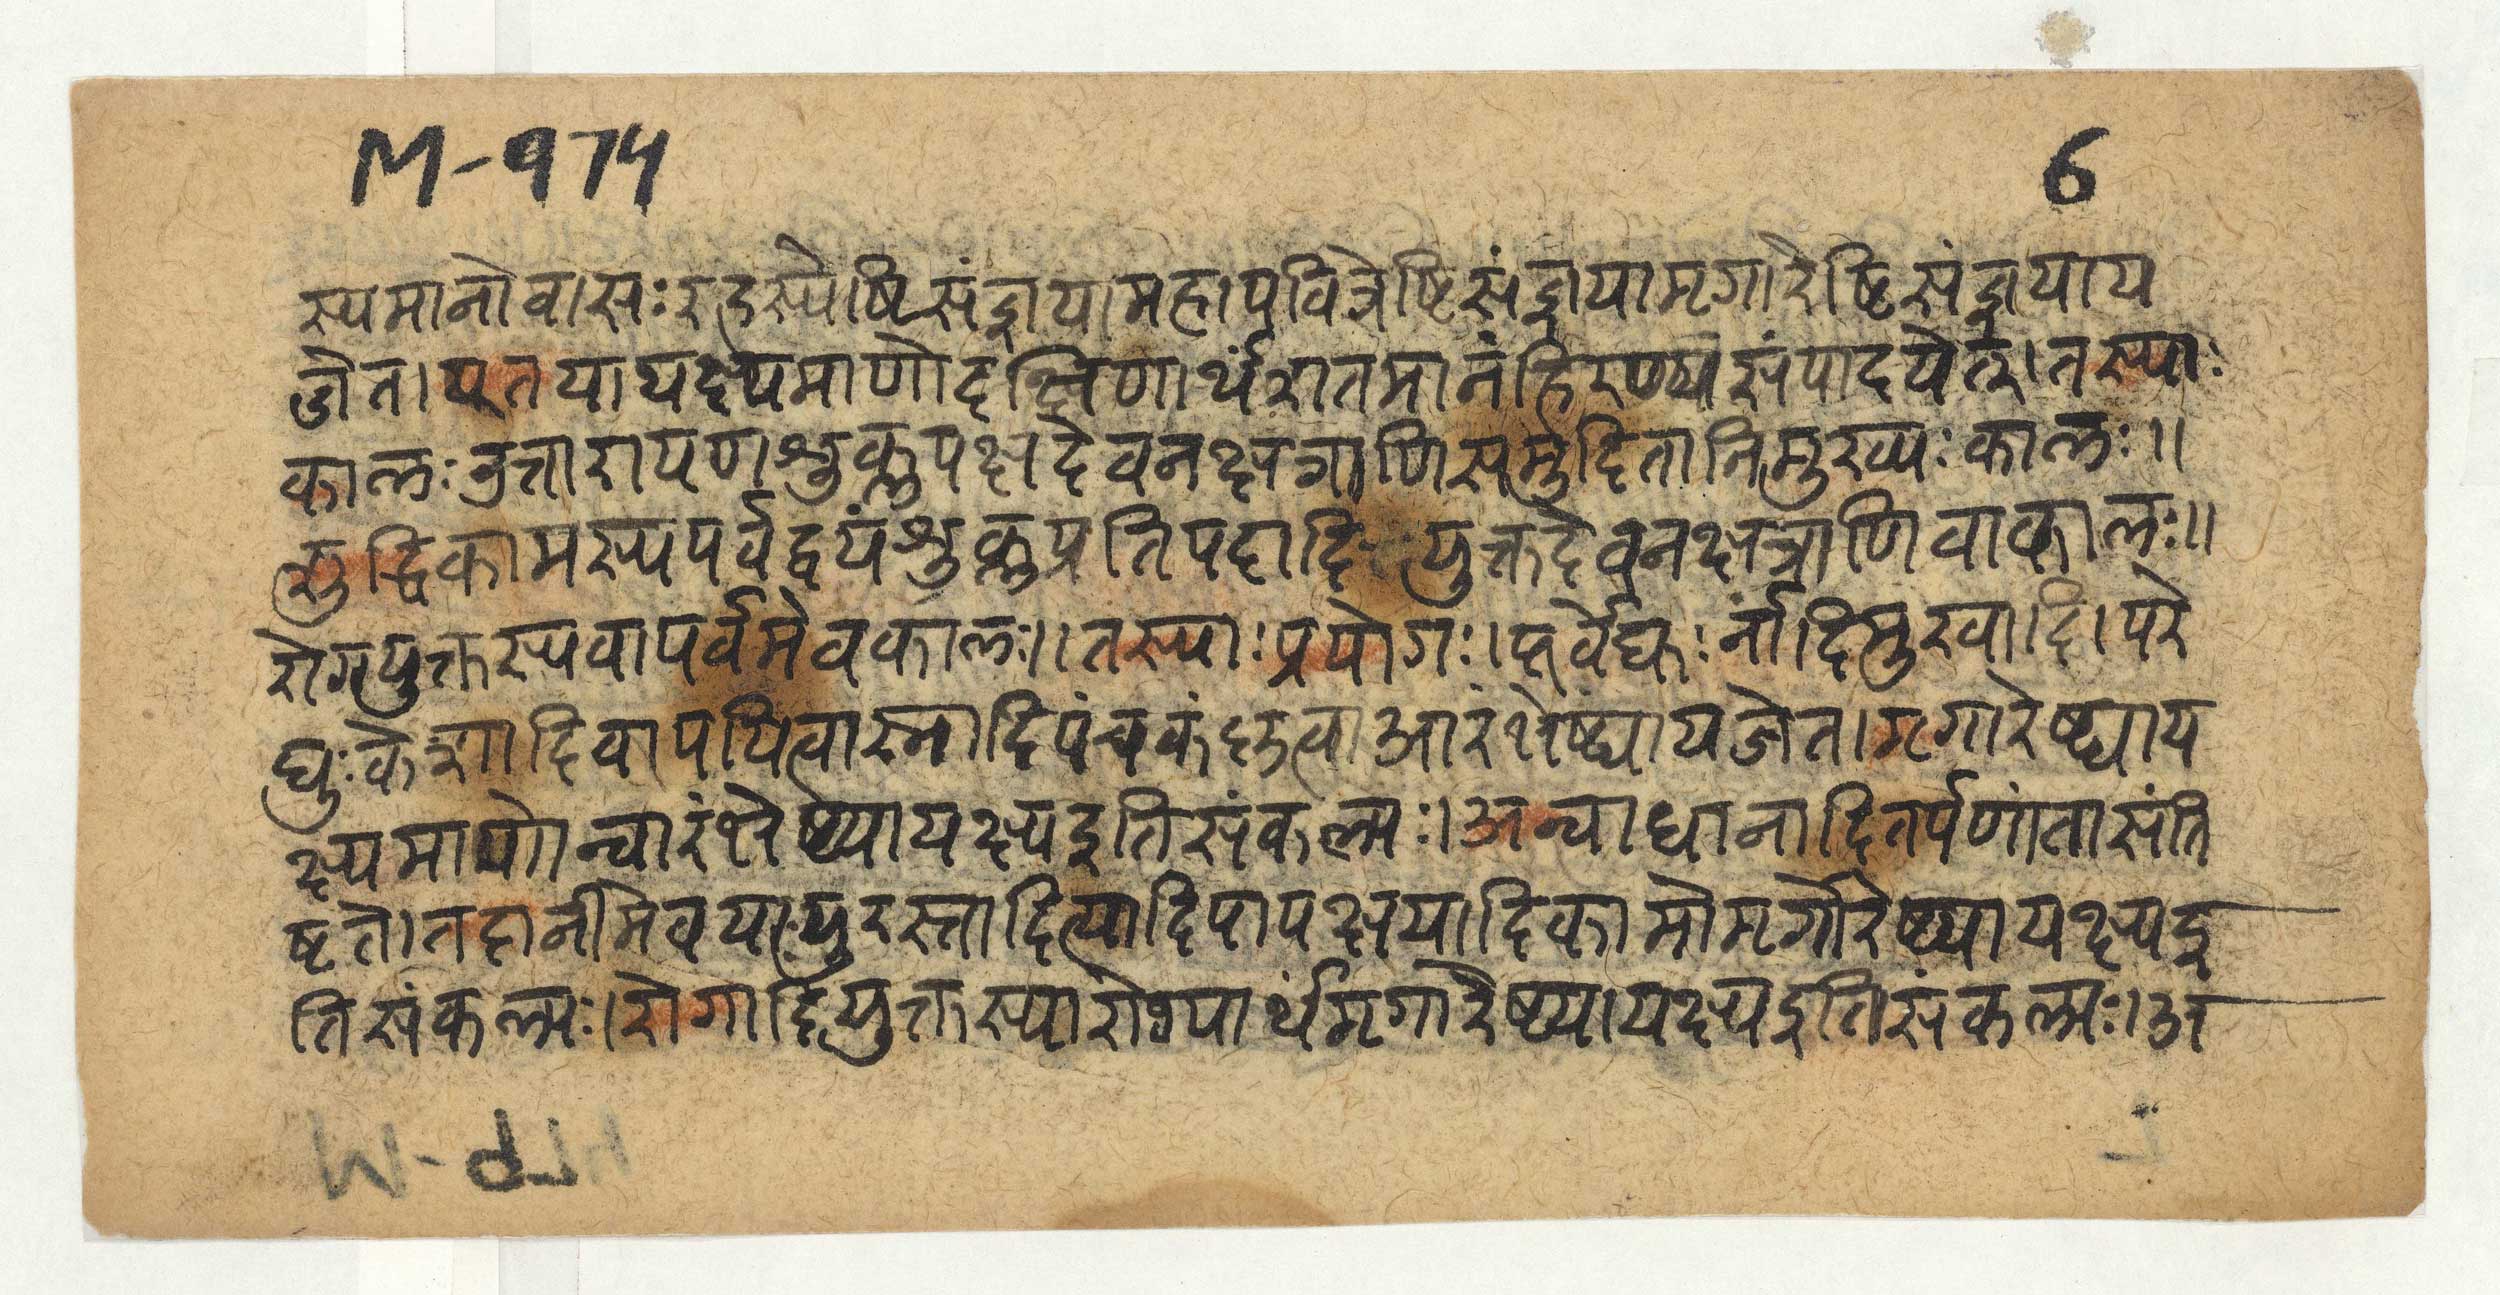 M-१७५
6
स्यमानोवासः रुहस्येष्टिसंज्ञायामहापवित्रेष्टिसंज्ञायामृगारेष्टिसंज्ञायाय
जेत। एतयायक्ष्यमाणोदक्षिणार्थंशतमानंहिरण्यसंपादयेत्। तस्याः
कालः उत्तारायणशुक्लपक्षदेवनक्षत्राणिसमुदितानिमुख्यः कालः॥
शुद्धिकामस्यपर्वद्वयंशुक्लप्रतिपदादि युक्तदेवनक्षत्राणिवाकालः॥
रोगयुक्तस्यवापर्वमेवकालः॥ तस्याः प्रयोगः। पूर्वेद्युः नांदिमुखादि। परे
द्युः केशादिवापयित्वास्नादिपंचकंहुत्वाआरंभेष्ट्यायजेत। मृगारेष्ट्याय
क्ष्यमाणोन्वारंभेष्ट्यायक्ष्यइतिसंकल्पः। अन्वाधानादितर्पणांतासंति
ष्टते। तदानीमेवयापुरस्तादित्यादिपापक्षयादिकामोमृगारेष्ट्यायक्ष्यइ
तिसंकल्पः। रोगादियुक्तस्यारोग्यार्थंमृगारेष्ट्यायक्ष्यइतिसंकल्पः। अ